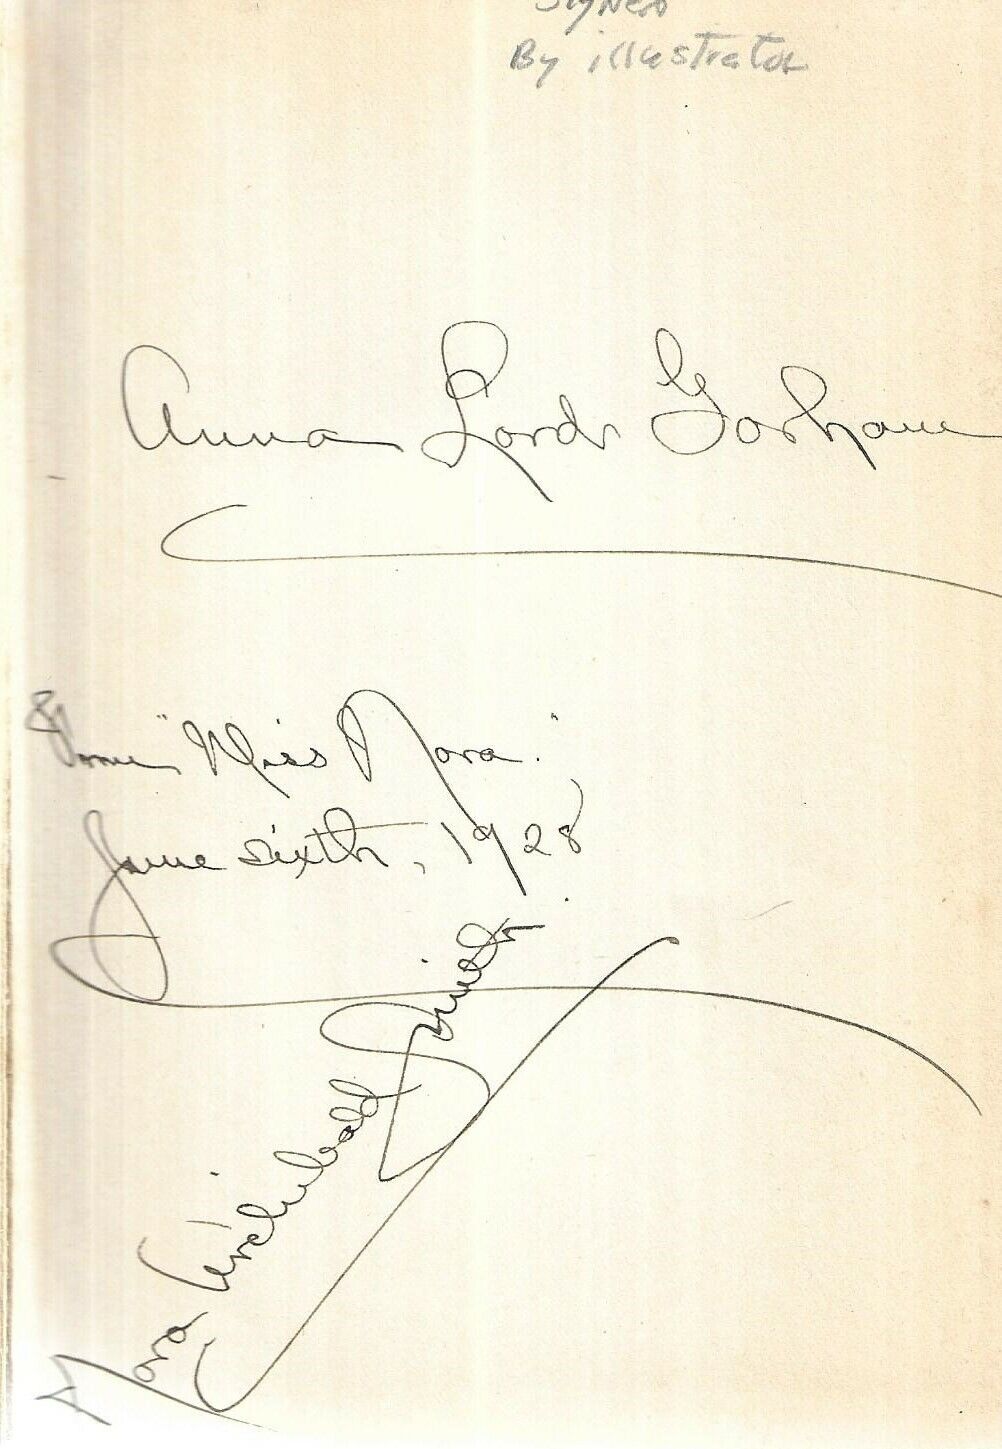 Signed
By illustrator
Anna Lord Gorham
From "Miss Nora."
June sixth, 1928
Nora Archibald Smith.